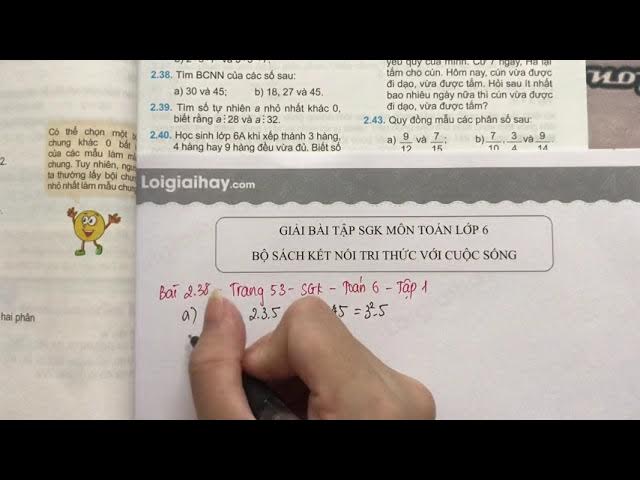 2.38. Tìm BCNN của các số sau:
a) 30 và 45; b) 18, 27 và 45.
2.39. Tìm số tự nhiên a nhỏ nhất khác 0,
biết rằng a⋮28 và a⋮32.
2.40. Học sinh lớp 6A khi xếp thành 3 hàng,
4 hàng hay 9 hàng đều vừa đủ. Biết số
yêu quý của mình. Cứ 7 ngày, Hà lại
tắm cho cún. Hôm nay, cún vừa được
đi dạo, vừa được tắm. Hỏi sau ít nhất
bao nhiêu ngày nữa thì cún vừa được
đi dạo, vừa được tắm?
2.43. Quy đồng mẫu các phân số sau:
a) 9/12 và 7/15; b) 7/10, 3/4 và 9/14.
Có thể chọn một
chung khác 0 bất
của các mẫu làm
chung. Tuy nhiên,
ta thường lấy bội
nhỏ nhất làm mẫu
hai phân
Loigiaihay.com
GIẢI BÀI TẬP SGK MÔN TOÁN LỚP 6
BỘ SÁCH KẾT NỐI TRI THỨC VỚI CUỘC SỐNG
Bài 2.38 - Trang 53 - SGK - Toán 6 - Tập 1
a) 2.3.5 45 = 3².5